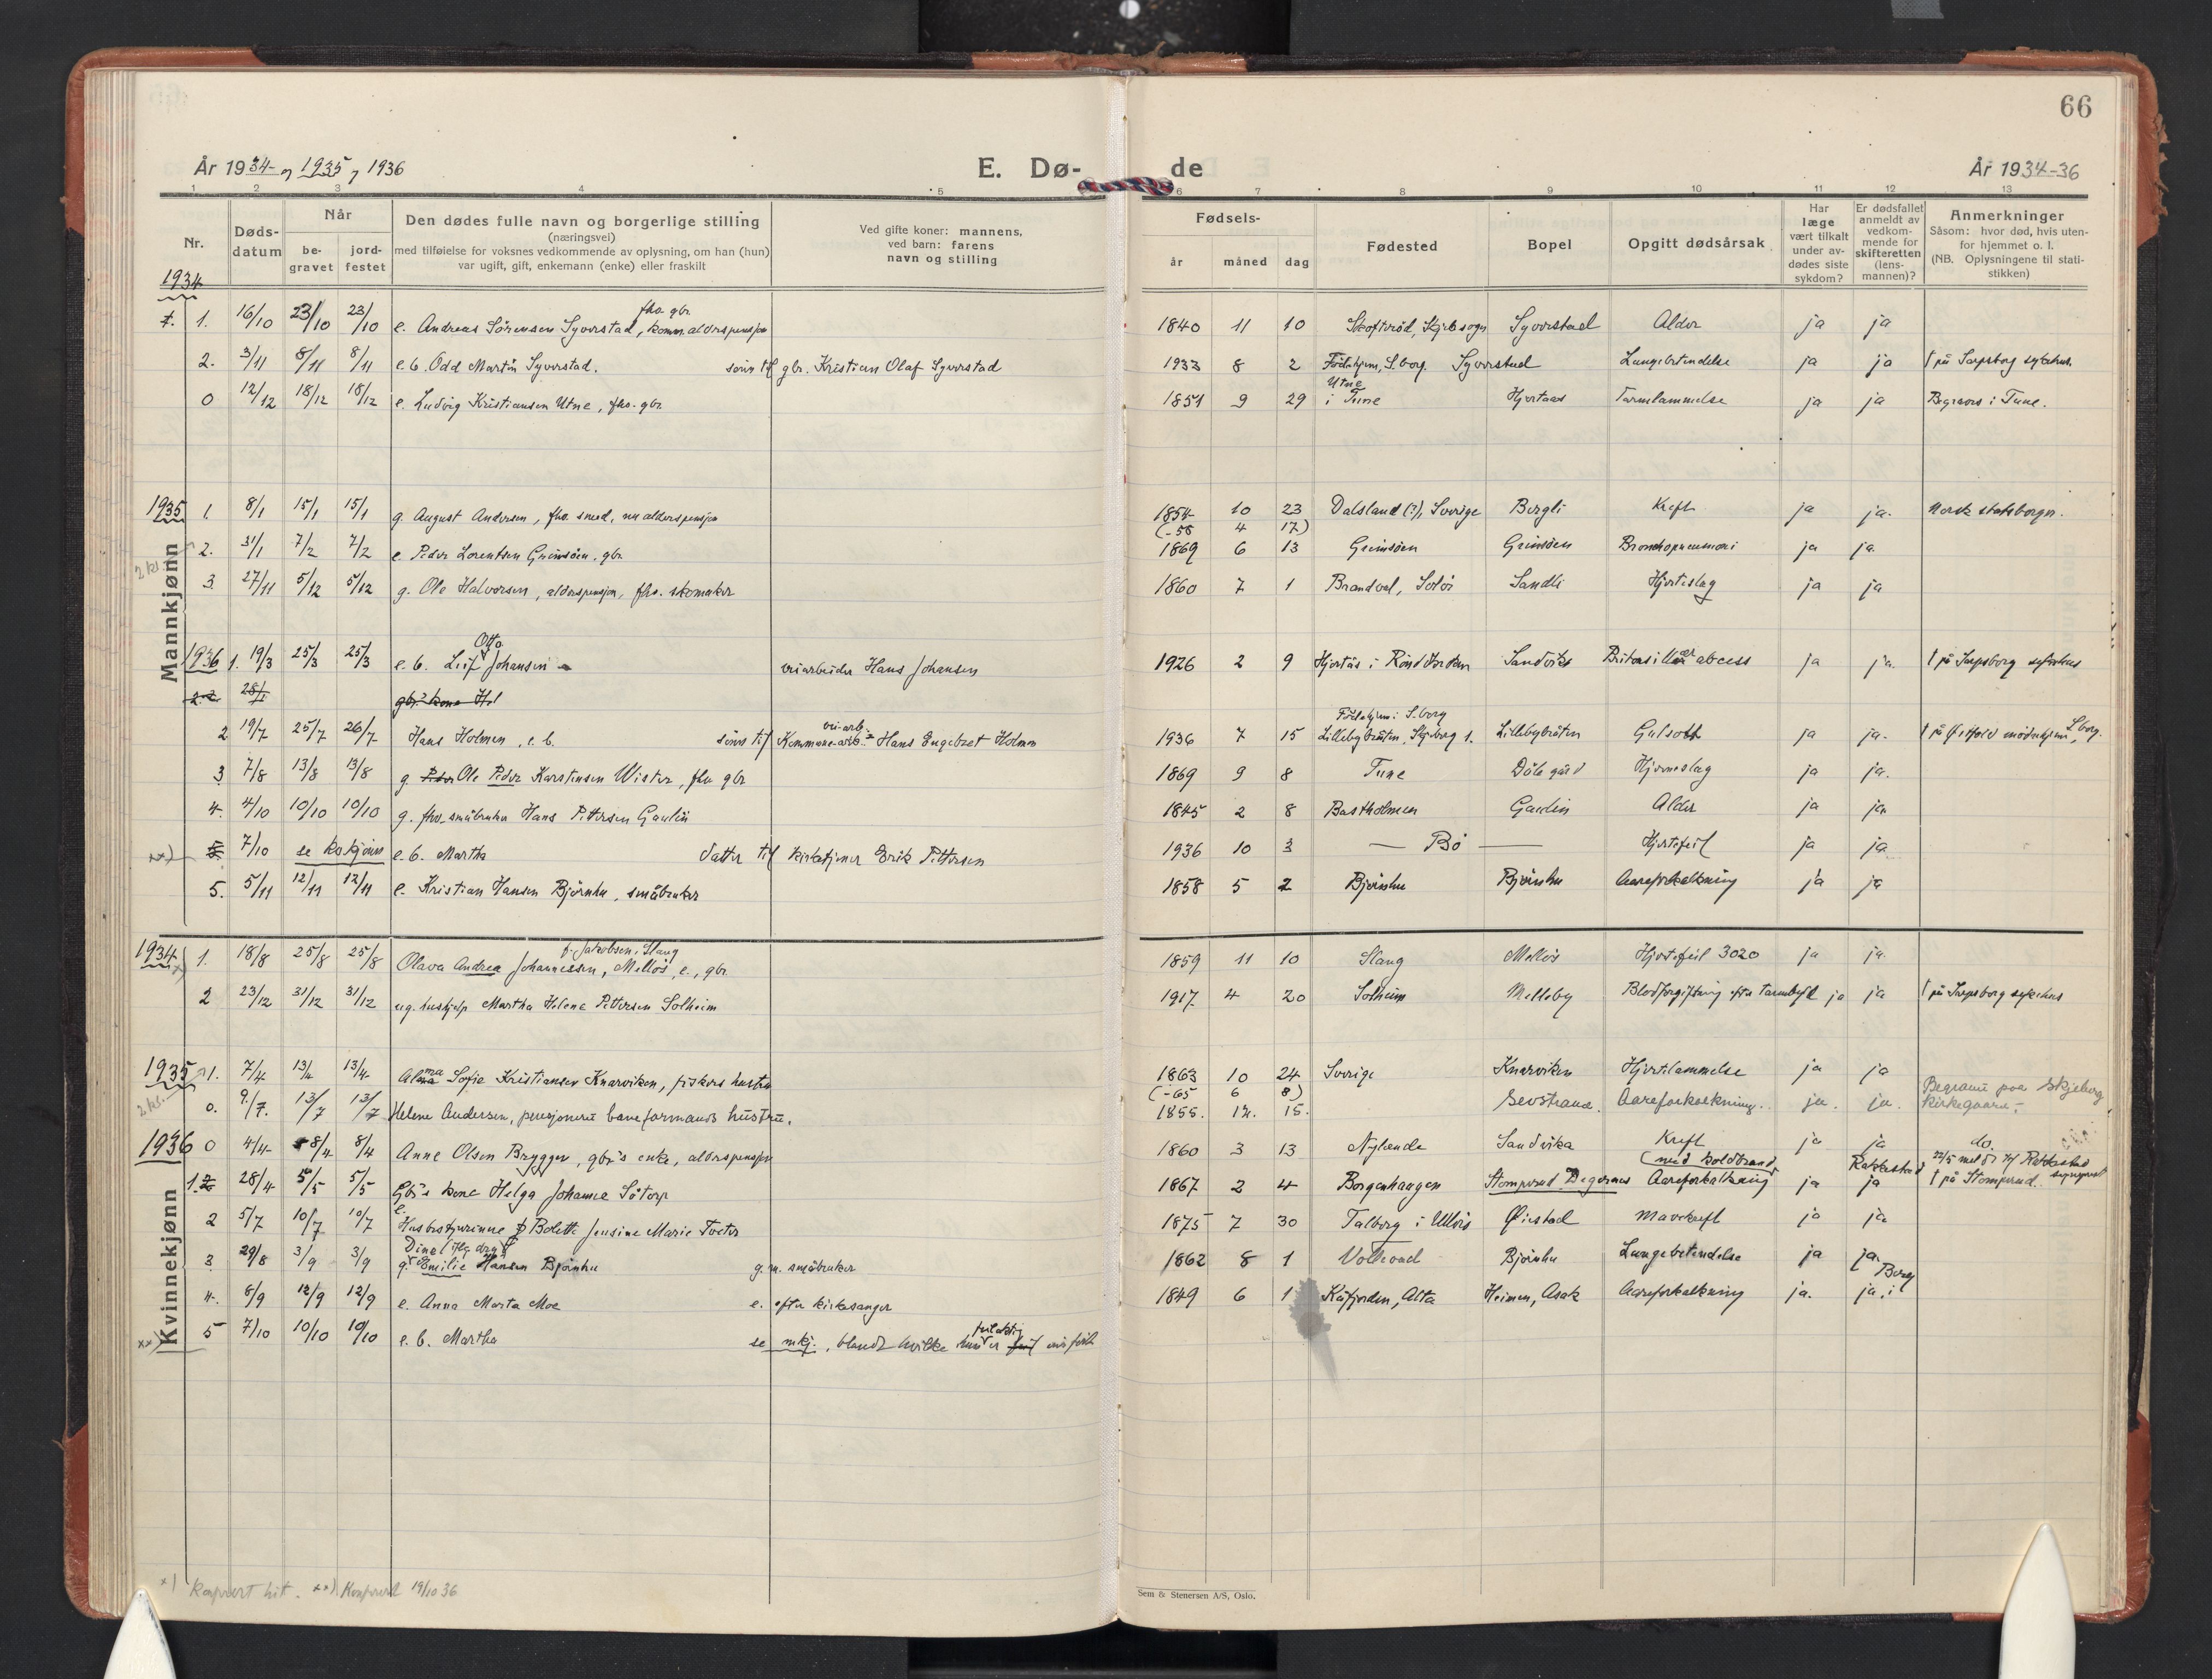 66
År 1934 og 1935 og 1936
E. Dø- de
År 1934-36
1 2 3 4 5 6 7 8 9 10 11 12 13
Nr.
Døds-
datum
Når
be-
gravet
jord-
festet
Den dødes fulle navn og borgerlige stilling
(næringsvei)
med tilføielse for voksnes vedkommende av oplysning, om han (hun)
var ugift, gift, enkemann (enke) eller fraskilt
Ved gifte koner: mannens,
ved barn: farens
navn og stilling
Fødsels-
år måned dag
Fødested
Bopel
Opgitt dødsårsak
Har
læge
vært tilkalt
under av-
dødes siste
sykdom?
Er dødsfallet
anmeldt av
vedkom-
mende for
skifteretten
(lens-
mannen)?
Anmerkninger
Såsom: hvor død, hvis uten-
for hjemmet o. l.
(NB. Oplysningene til stati-
stikken)
Mannkjønn
1934
1. 16/10 23/10 23/10 e. Andreas Sörensen Syverstad, fhv. gbr. komm. alderspensjon 1840 11 10 Skofteröd, Skjebsogn Syverstad Alder ja ja
2. 3/11 8/11 8/11 e.b. Odd Martin Syverstad. sönn til gbr. Kristian Olaf Syverstad 1933 8 2 Födehjem, S.borg. Syverstad Lungebetendelse ja ja † på Sarpsborg sykehus
0 12/12 18/12 18/12 e. Ludvig Kristiansen Utne, fhv. gbr. 1851 9 29 Utne i Tune Hjortaas Tarmlammelse ja ja Begraves i Tune.
1935 1. 8/1 15/1 15/1 g. August Andersen, fhv. smed, nu alderspensjon 1854 10 23 Dalsland (?), Sverige Bergli Kreft ja ja. Norsk statsborger.
(-58 4 17)
2. 31/1 7/2 7/2 e. Peder Lorentsen Grimsöen, gbr. 1869 6 13 Grimsöen Grimsöen Bronchopneumoni ja ja
3. 27/11 5/12 5/12 g. Ole Halvorsen, alderspensjon, fhv. skomaker 1860 7 1 Brandval, Solör Sandli Hjerteslag ja ja
1936 1. 19/3 25/3 25/3 e.b. Leif Otto Johansen veiarbeider Hans Johansen 1926 2 9 Hjortås i Sandvika abcess ja ja. † på Sarpsborg sykehus
28/1 gbr's kone
2 19/7 25/7 26/7 Hans Holmen, e.b. sönn til Kommune-arb. vei-arb. Hans Engebret Holmen 1936 7 15 Födehjem i S.borg Lillebybråten Gulsott ja ja. † på Østfold mödrehjem, S.borg.
3 7/8 13/8 13/8 g. Ole Peder Karstensen Wister, fhv gbr 1869 9 8 Tune Döle gård Hjerneslag ja ja.
4. 4/10 10/10 10/10 g. fhv. småbruker Hans Pettersen Gaulin 1845 2 8 Bastholmen Gaulin Alder ja ja
xx) 5. 7/10 se kv.kjönn e.b. Martha datter til kirketjener Erik Pettersen 1936 10 3 — Bö — Hjertefeil ja ja
5. 5/11 12/11 12/11 e. Kristian Hansen Björnhu, småbruker 1858 5 2 Björnhu Björnhu Aareforkalkning ja ja
Kvinnekjønn
1934 x) 1. 18/8 25/8 25/8 Olava Andrea Johannessen, Mellös, e., gbr. f. Jakobsen, Slang 1859 11 10 Slang Mellös Hjertefeil 3020 ja ja.
2 23/12 31/12 31/12 ug. hushjelp Martha Helene Pettersen Solheim 1917 4 20 Solheim Melleby Blodforgiftning efter ja ja † på Sarpsborg sykehus
1935 1. 7/4 13/4 13/4 Alma Sofie Kristiansen Knarviken, fiskers hustru 1863 10 24 Sverige Knarviken Hjertelammelse ja ja
(-65 6 8)
0. 9/7. 13/7 13/7 Helene Andersen, pensjonert baneformands hustru. 1855. 12. 15. Sevstrand. Aareforkalkning. ja. ja. Begravet paa Skjeberg kirkegaard.
1936 0 4/4 8/4 8/4 Anne Olsen Brygger, gbr's enke, alderspensjon 1860 3 13 Nylende Sandvika Kreft ja ja do.
1. 28/4 5/5 5/5 Gbr's kone Helga Johanna Sötorp 1867 2 4 Borgenhaugen Stomperud Degernes Aareforkalkning (med koldbrand) ja ja Rakkestad 22/5 meldt til Rakkestad † på Stomperud.
2 5/7 10/7 10/7 e. Husbestyrerinne Bolette Jensine Marie 1875 7 30 Øiestad Mavekreft ja ja
3 29/8 3/9 3/9 g. Emilie Hansen Björnhu g.m. småbruker 1862 8 1 Björnhu Lungebetendelse ja ja.
4. 8/9 12/9 12/9 e. Anna Marta Moe e. efter kirkesanger 1849 6 1 Kåfjorden, Alta Heimen, Asak Aareforkalkning ja. ja, i Berg
xx) 5 7/10 10/10 10/10 e.b. Martha se mkj., blandt hvilke hun er feilaktig innfört
x) Konferert hit. xx) Konferert 19/10 36
Sem & Stenersen A/S, Oslo.